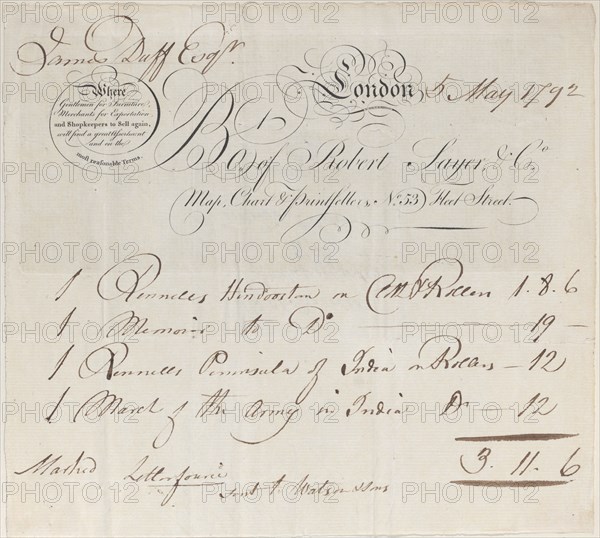 James Duff Esqr.
Where
Gentlemen for Furniture,
Merchants for Exportation
and Shopkeepers to Sell again,
will find a great Assortment
and on the
most reasonable Terms.
London 5 May 1792
Bot. of Robert Sayer, & Co.
Map, Chart & Printsellers, No. 53, Fleet Street.
1 Rennells Hindoostan on & Rollers 1.8.6
1 Memoir to Do 19 —
1 Rennells Peninsula of India on Rollers — 12
1 March of the Army in India Do — 12
3.11.6
Marked
sent to Watson & Sons
PHOTO 12